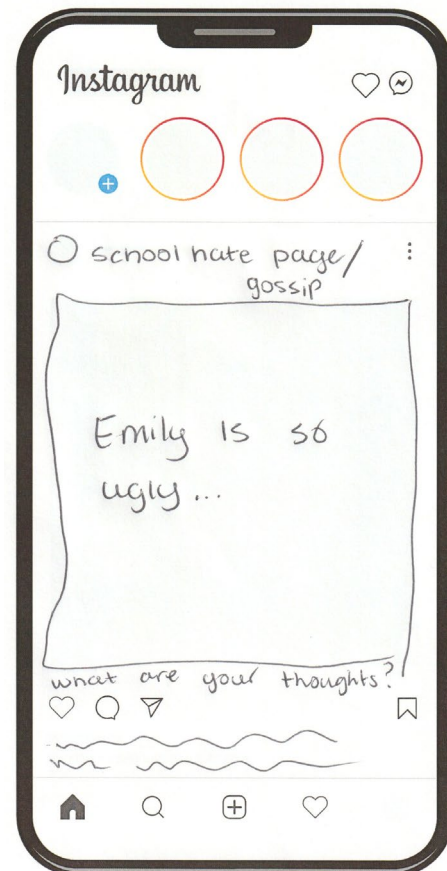 Instagram
school hate page/
gossip
Emily is so
ugly...
what are your thoughts?